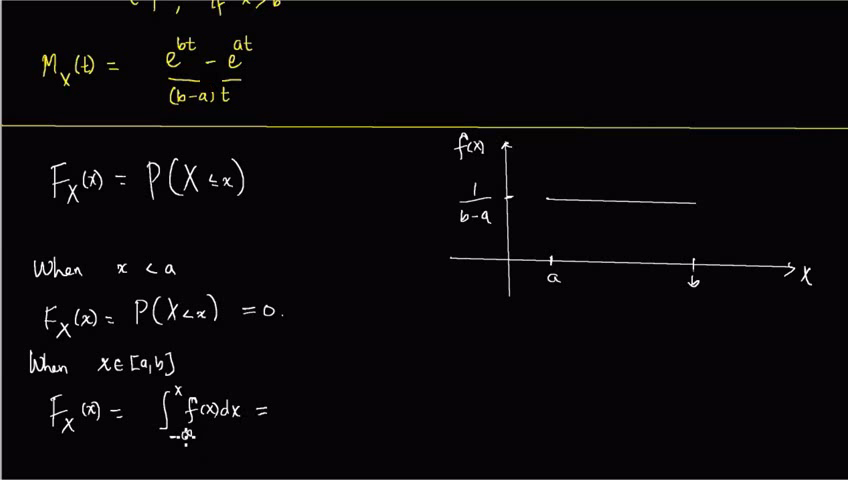 M_X(t) = (e^{bt} - e^{at}) / ((b-a)t)
F_X(x) = P(X ≤ x)
When x < a
F_X(x) = P(X < x) = 0.
When x ∈ [a, b]
F_X(x) = ∫_{-∞}^{x} f(x)dx =
f(x)
1/(b-a)
a
b
X